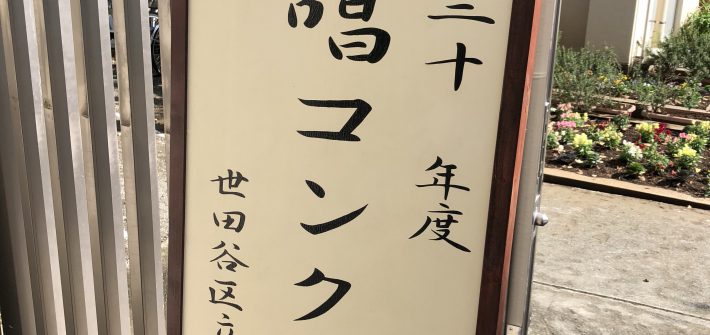 三十 年度
唱コンク
世田谷区立